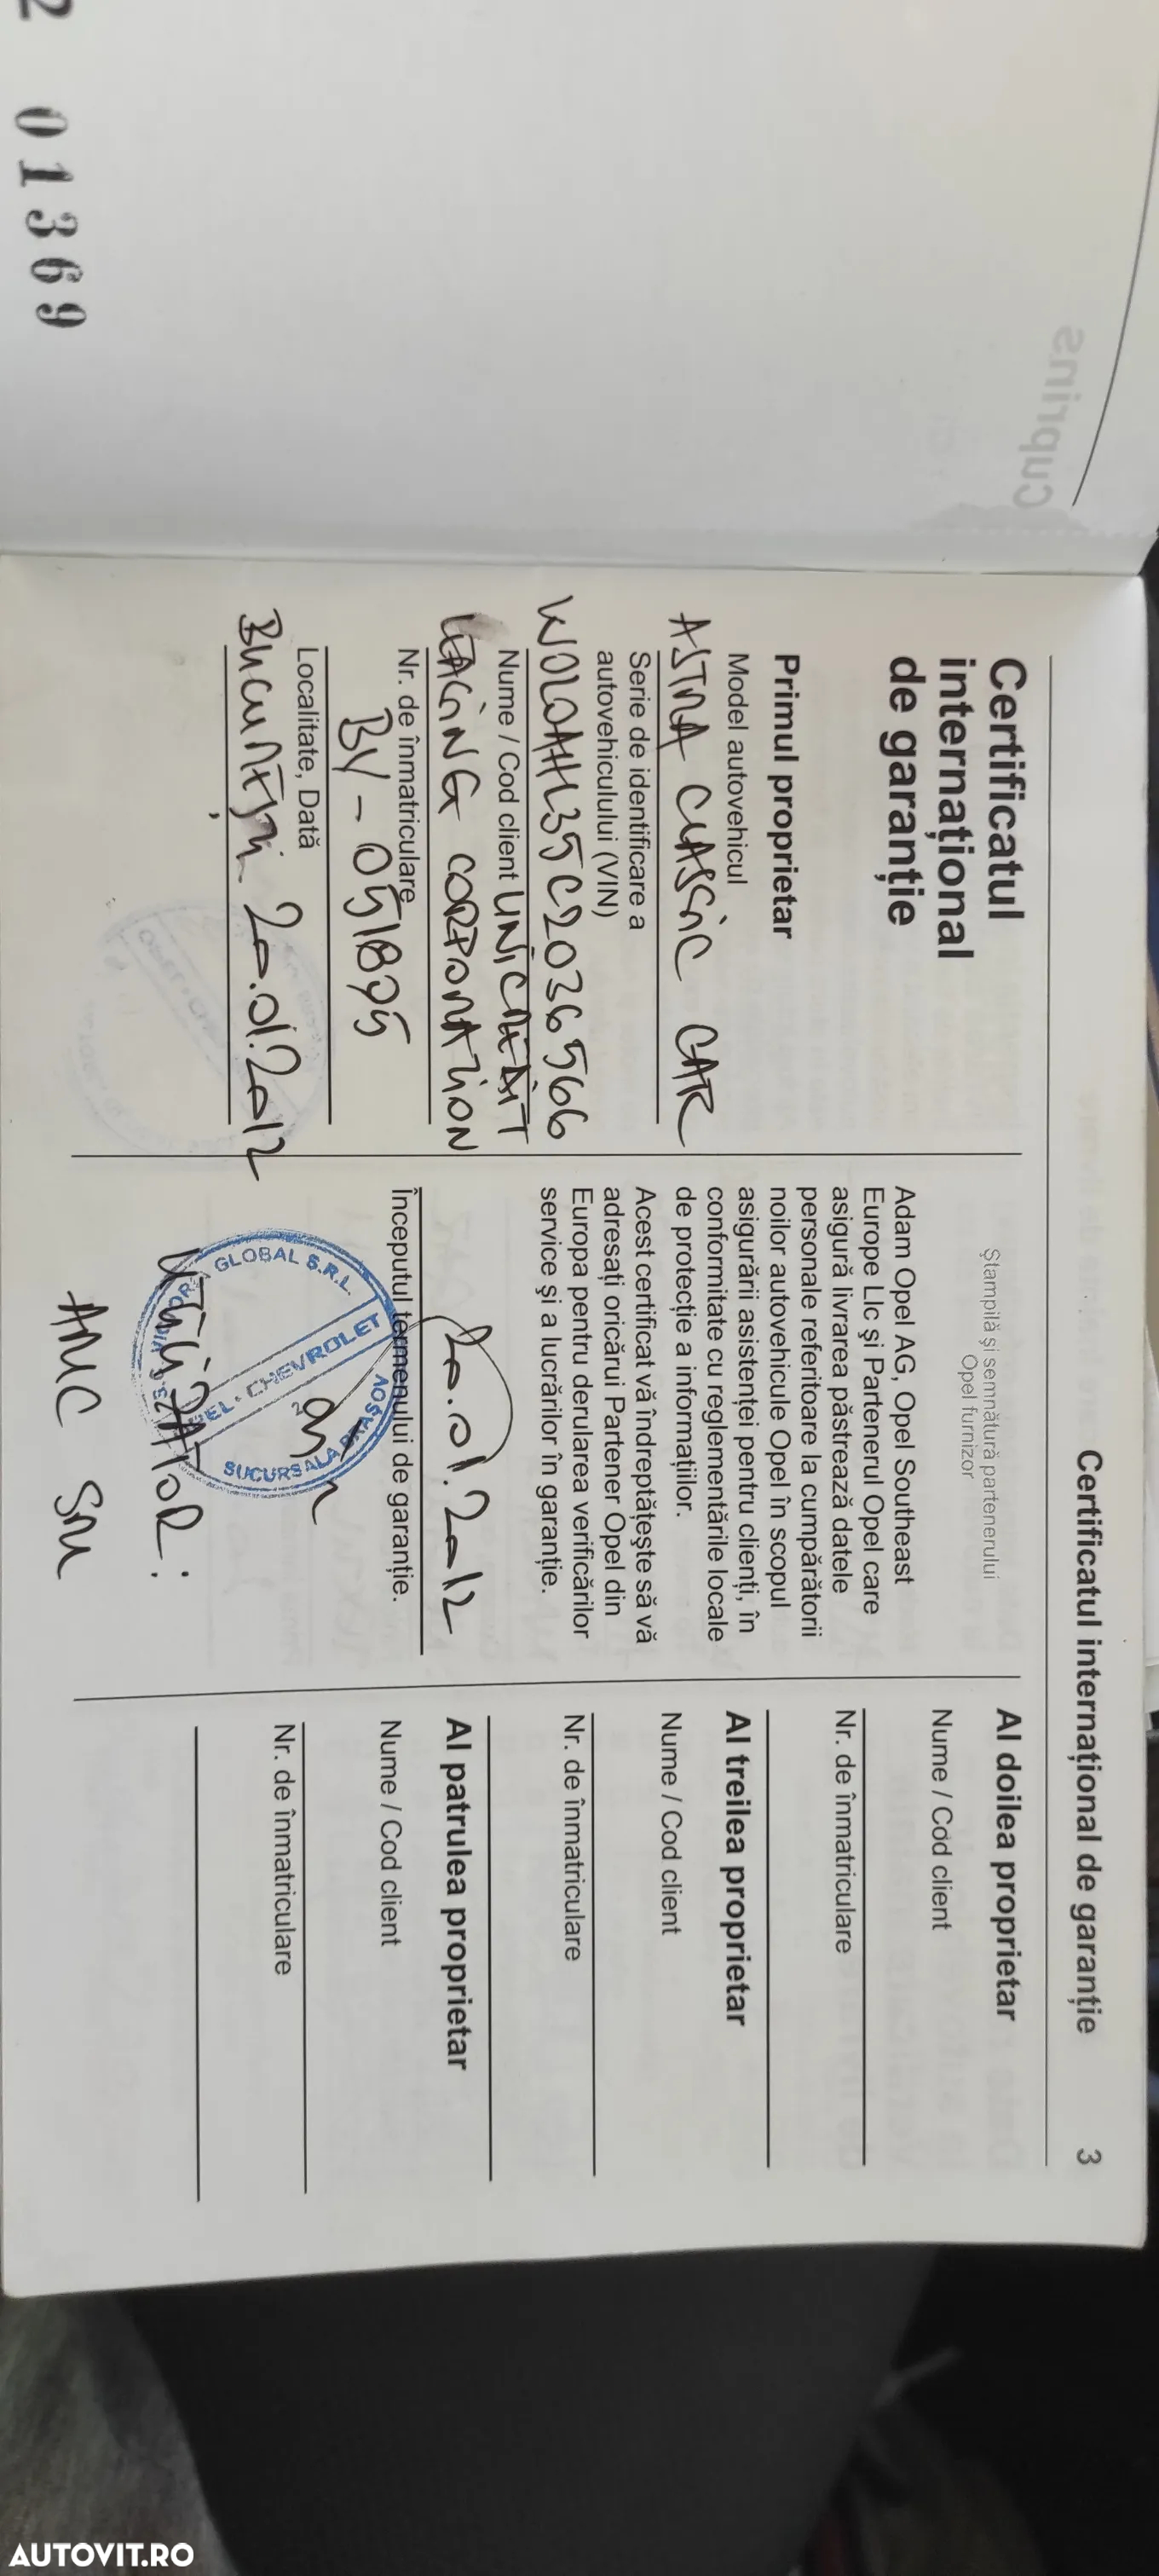 2 01369
Cuprins
Certificatul internațional de garanție 3
Certificatul
internațional
de garanție
Primul proprietar
Model autovehicul
ASTRA CLASSIC CAR
Serie de identificare a
autovehiculului (VIN)
W0L0AHL35C2036566
Nume / Cod client UNICREDIT
LEASING CORPORATION
Nr. de înmatriculare
BV - 051895
Localitate, Dată
București 20.01.2012
Ștampilă și semnătură partenerului
Opel furnizor
Adam Opel AG, Opel Southeast
Europe Llc și Partenerul Opel care
asigură livrarea păstrează datele
personale referitoare la cumpărătorii
noilor autovehicule Opel în scopul
asigurării asistenței pentru clienți, în
conformitate cu reglementările locale
de protecție a informațiilor.
Acest certificat vă îndreptățește să vă
adresați oricărui Partener Opel din
Europa pentru derularea verificărilor
service și a lucrărilor în garanție.
20.01.2012
Începutul termenului de garanție.
GLOBAL S.R.L.
OPEL · CHEVROLET
SUCURSALA BRAȘOV
UTILIZATOR:
AMC SRL
Al doilea proprietar
Nume / Cod client
Nr. de înmatriculare
Al treilea proprietar
Nume / Cod client
Nr. de înmatriculare
Al patrulea proprietar
Nume / Cod client
Nr. de înmatriculare
AUTOVIT.RO